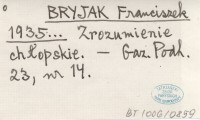 BRYJAK Franciszek
1935... Zrozumienie
chłopskie. — Gaz. Podl.
23, nr 14.